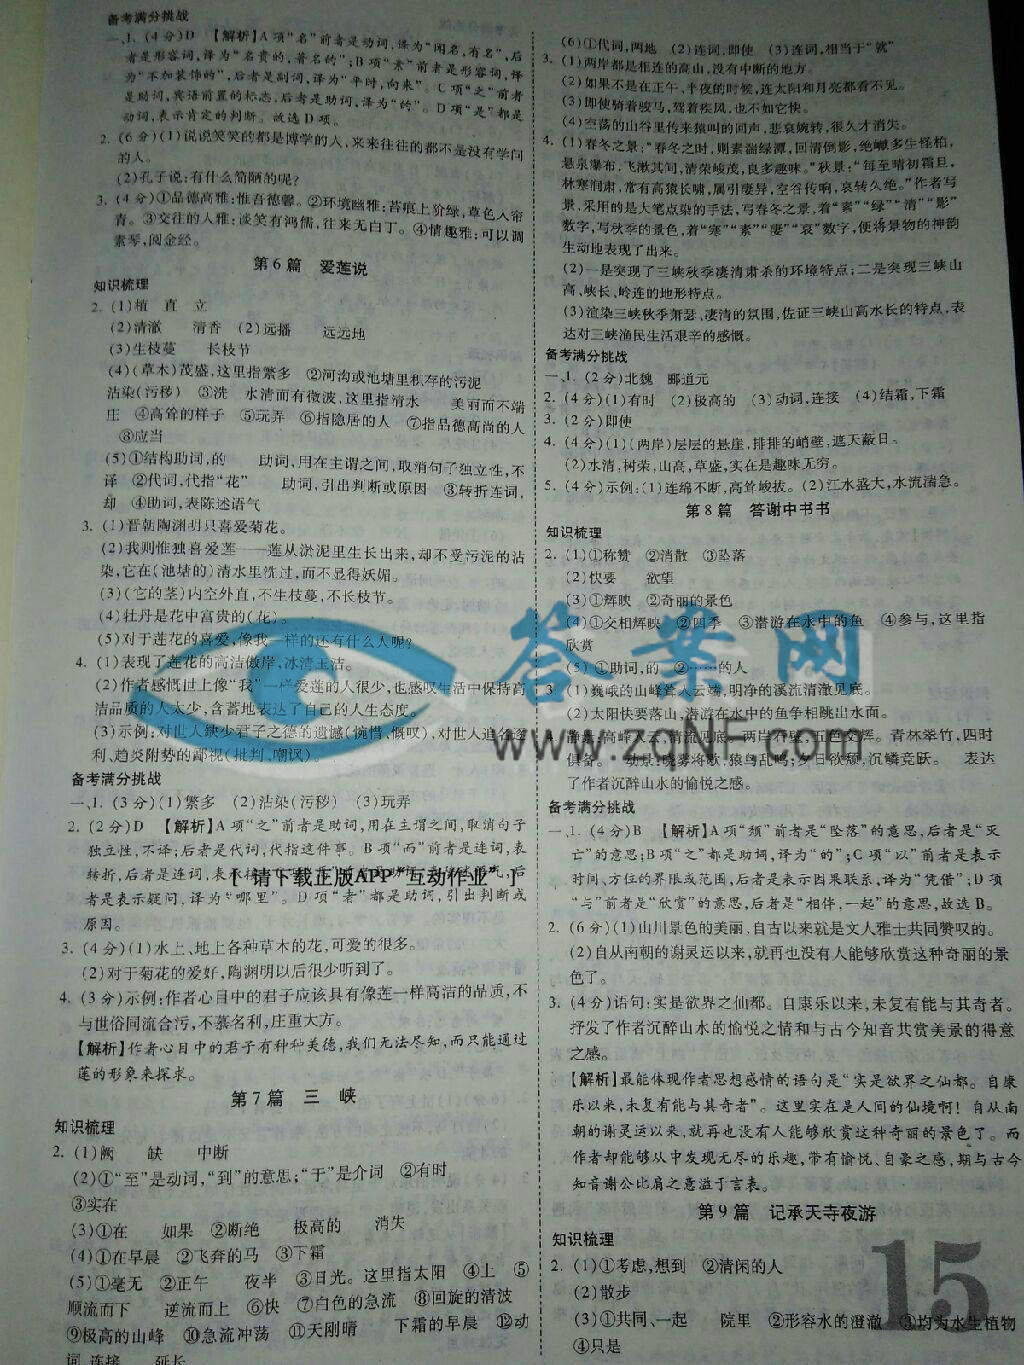 备考满分挑战
一、1. (4分)D 【解析】A项“名”前者是动词,译为“闻名,有名”,后
者是形容词,译为“名贵的,著名的”;B项“素”前者是形容词,译
为“不加装饰的”,后者是副词,译为“平时,向来”。C项“之”前者
是助词,宾语前置的标志,后者是助词,译为“的”。D项“是”都是
动词,表示肯定的判断。故选D项。
2. (6分)(1)说说笑笑的都是博学的人,来来往往的都不是没有学问
的人。
(2)孔子说:有什么简陋的呢?
3. (4分)①品德高雅:惟吾德馨。②环境幽雅:苔痕上阶绿,草色入帘
青。③交往的人雅:谈笑有鸿儒,往来无白丁。④情趣雅:可以调
素琴,阅金经。
第6篇 爱莲说
知识梳理
2. (1)植 直 立
(2)清澈 清香 (2)远播 远远地
(3)生枝蔓 长枝节
(4)(草木)茂盛,这里指繁多 ②河沟或池塘里积存的污泥
沾染(污秽) ③洗 水清而有微波,这里指清水 美丽而不端
庄 ④高耸的样子 ⑤玩弄 ⑥指隐居的人 ⑦指品德高尚的人
⑧应当
(5)①结构助词,的 助词,用在主谓之间,取消句子独立性,不
译 ②代词,代指“花” 助词,引出判断或原因 ③转折连词,
却 ④助词,表陈述语气
3. (1)晋朝陶渊明只喜爱菊花。
(2)我则惟独喜爱莲——莲从淤泥里生长出来,却不受污泥的沾
染,它在(池塘的)清水里洗过,而不显得妖媚。
(3)(它的茎)内空外直,不生枝蔓,不长枝节。
(4)牡丹是花中富贵的(花)。
(5)对于莲花的喜爱,像我一样的还有什么人呢?
4. (1)表现了莲花的高洁傲岸,冰清玉洁。
(2)作者感慨世上像“我”一样爱莲的人很少,也感叹生活中保持高
洁品质的人太少,含蓄地表达了自己的人生态度。
(3)示例:对世人缺少君子之德的遗憾(惋惜、慨叹),对世人追名逐
利、趋炎附势的鄙视(批判、嘲讽)。
备考满分挑战
一、1. (3分)(1)繁多 (2)沾染(污秽) (3)玩弄
2. (2分)D 【解析】A项“之”前者是助词,用在主谓之间,取消句子
独立性,不译;后者是代词,代指这件事。B项“而”前者是连词,表
转折,后者是连词,表承接
【 请下载正版APP“互动作业” 】
语气,后
者是表示疑问,译为“哪里”。D项“者”都是助词,引出判断或
原因。
3. (4分)(1)水上、地上各种草木的花,可爱的很多。
(2)对于菊花的爱好,陶渊明以后很少听到了。
4. (3分)示例:作者心目中的君子应该具有像莲一样高洁的品质,不
与世俗同流合污,不慕名利,庄重大方。
【解析】作者心目中的君子有种种美德,我们无法尽知,而只能通过
莲的形象来探求。
第7篇 三 峡
知识梳理
2. (1)阙 缺 中断
(2)①“至”是动词,“到”的意思;“于”是介词 ②有时
③实在
(3)①在 如果 ②断绝 极高的 消失
(4)①在早晨 ②飞奔的马 ③下霜
(5)①毫无 ②正午 夜半 ③日光。这里指太阳 ④上 ⑤
顺流而下 逆流而上 ⑥快 ⑦白色的急流 ⑧回旋的清波
⑨极高的山峰 ⑩急流冲荡 ⑪天刚晴 下霜的早晨 ⑫动
词,连接 延长
(6)①代词,两地 (2)连词,即使 (3)连词,相当于“就”
3. (1)两岸都是相连的高山,没有中断的地方。
(2)如果不是在正午、半夜的时候,连太阳和月亮都看不见。
(3)即使骑着骏马,驾着疾风,也不如它快。
(4)空荡的山谷里传来猿叫的回声,悲哀婉转,很久才消失。
4. (1)春冬之景:“春冬之时,则素湍绿潭,回清倒影,绝巘多生怪柏,
悬泉瀑布,飞漱其间,清荣峻茂,良多趣味。”秋景:“每至晴初霜旦,
林寒涧肃,常有高猿长啸,属引凄异,空谷传响,哀转久绝。”作者写
景,采用的是大笔点染的手法,写春冬之景,着“素”“绿”“清”“影”
数字,写秋季的景色,着“寒”“素”“凄”“哀”数字,便将景物的神韵
生动地表现了出来。
(2)一是突现了三峡秋季凄清肃杀的环境特点;二是突现三峡山
高、峡长、岭连的地形特点。
(3)渲染三峡秋季萧瑟、凄清的氛围,佐证三峡山高水长的特点,表
达对三峡渔民生活艰辛的感慨。
备考满分挑战
一、1. (2分)北魏 郦道元
2. (4分)(1)有时 (2)极高的 (3)动词,连接 (4)结霜,下霜
3. (2分)即使
4. (4分)(1)(两岸)层层的悬崖,排排的峭壁,遮天蔽日。
(2)水清,树荣,山高,草盛,实在是趣味无穷。
5. (4分)示例:(1)连绵不断,高耸峻拔。(2)江水盛大,水流湍急。
第8篇 答谢中书书
知识梳理
2. (1)①称赞 ②消散 ③坠落
(2)快要 欲望
(3)①辉映 ②奇丽的景色
(4)①交相辉映 ②四季 ③潜游在水中的鱼 ④参与,这里指
欣赏
(5)①助词,的 ②……的人
3. (1)巍峨的山峰耸入云端,明净的溪流清澈见底。
(2)太阳快要落山,潜游在水中的鱼争相跳出水面。
4. 静景:高峰入云,清流见底。两岸石壁,五色交辉。青林翠竹,四时
俱备。 动景:晓雾将歇,猿鸟乱鸣;夕日欲颓,沉鳞竞跃。 表达
了作者沉醉山水的愉悦之感。
备考满分挑战
一、1. (4分)B 【解析】A项“颓”前者是“坠落”的意思,后者是“灭
亡”的意思;B项“之”都是助词,译为“的”;C项“以”前者是表示
时间、方位的界限或范围,后者是表示因果联系,译为“凭借”;D项
“与”前者是“欣赏”的意思,后者是“相伴,一起”的意思,故选B。
2. (6分)(1)山川景色的美丽,自古以来就是文人雅士共同赞叹的。
(2)自从南朝的谢灵运以来,就再也没有人能够欣赏这种奇丽的景
色了。
3. (4分)语句:实是欲界之仙都。自康乐以来,未复有能与其奇者。
抒发了作者沉醉山水的愉悦之情和与古今知音共赏美景的得意
之感。
【解析】最能体现作者思想感情的语句是“实是欲界之仙都。自康
乐以来,未复有能与其奇者”。这里实在是人间的仙境啊!自从南
朝的谢灵运以来,就再也没有人能够欣赏这种奇丽的景色了。而
作者却能够从中发现无尽的乐趣,带有愉悦、自豪之感,期与古今
知音谢公比肩之意溢于言表。
第9篇 记承天寺夜游
知识梳理
2. (1)①考虑,想到 ②清闲的人
(2)散步
(3)①共同、一起 院里 ②形容水的澄澈 ③均为水生植物
④只是
15
答案网
www.zqNF.com